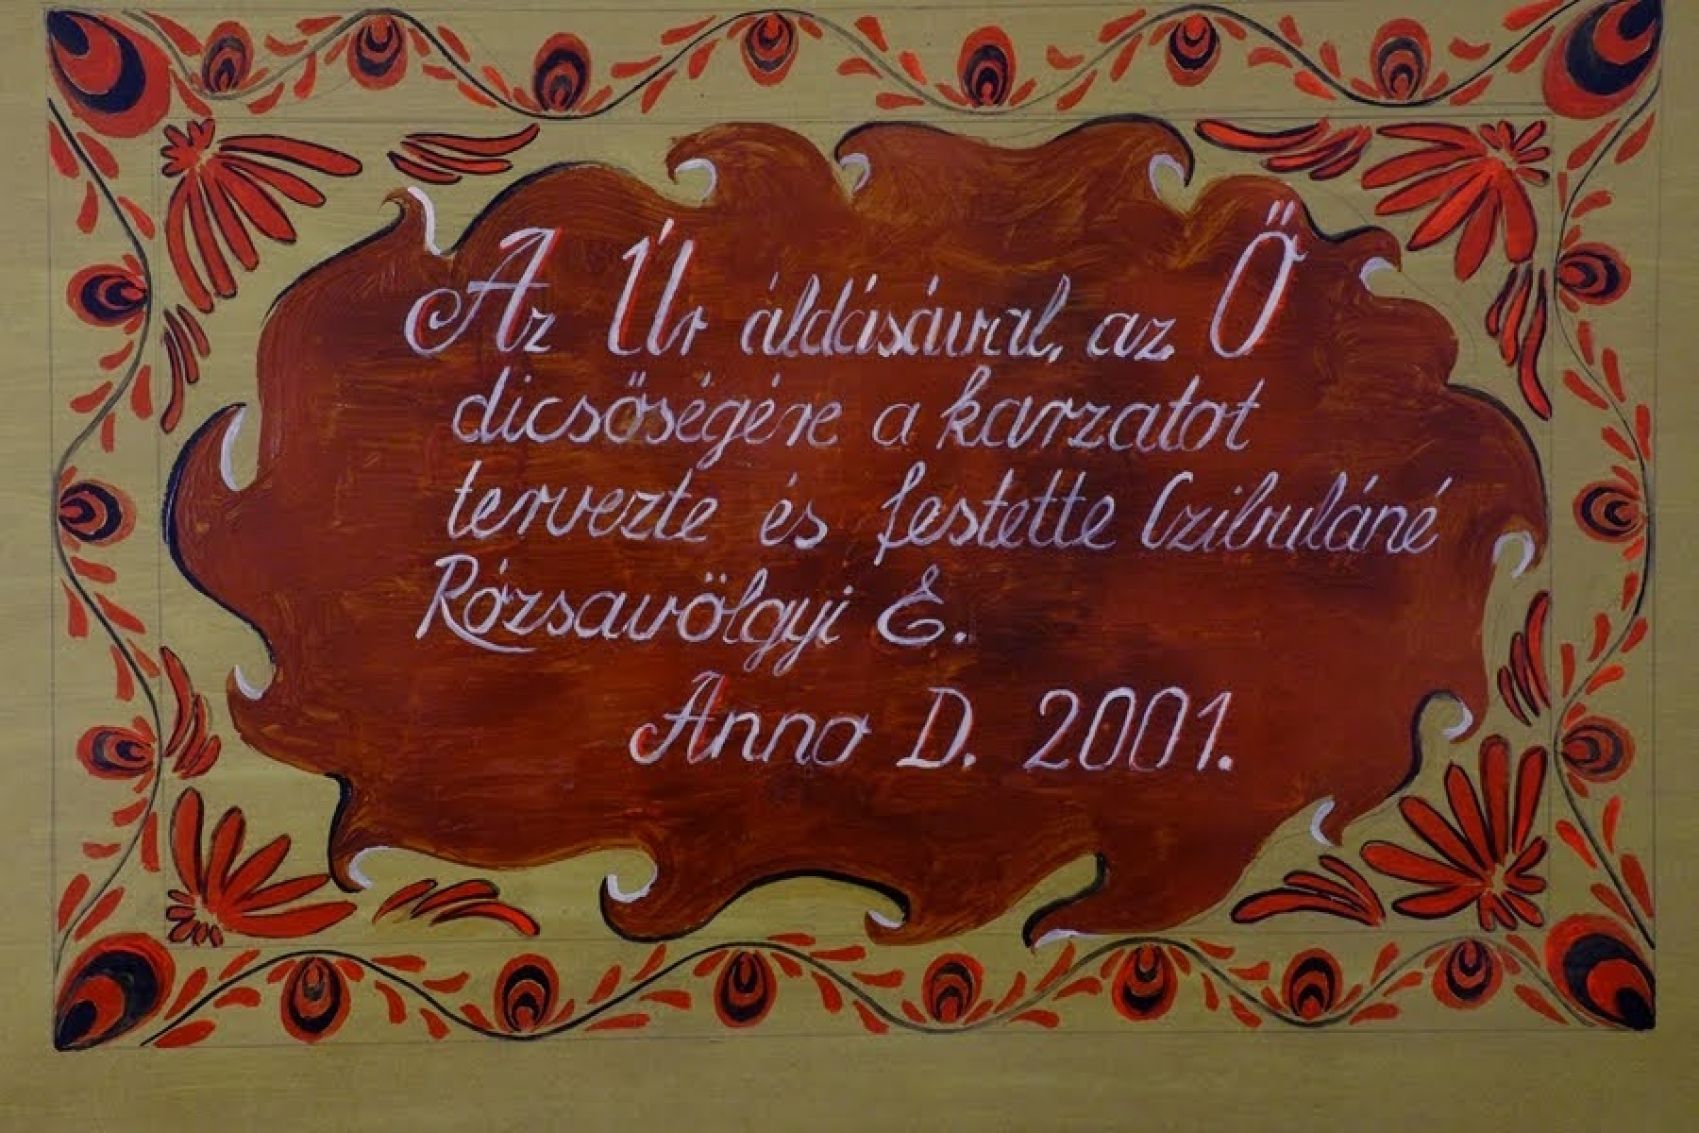 Az Úr áldásával, az Ő
dicsőségére a karzatot
tervezte és festette Czibuláné
Rózsavölgyi E.
Anno D. 2001.